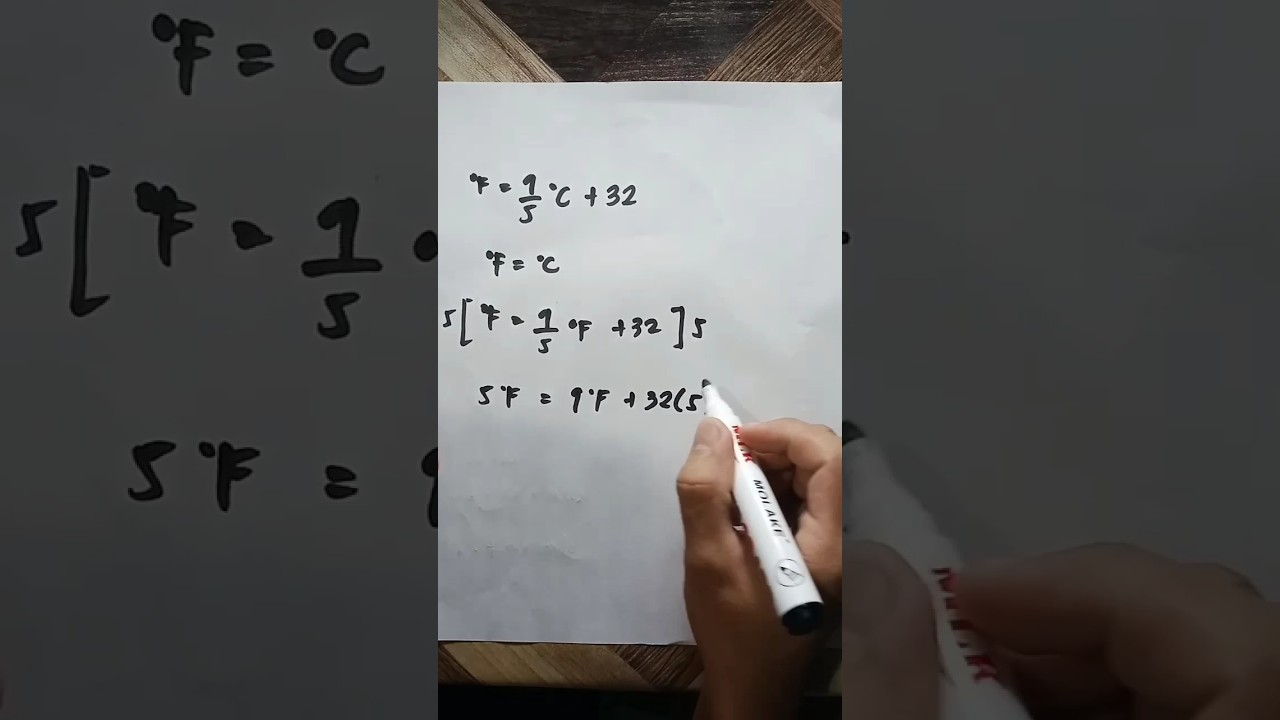 °F = 9/5 °C + 32
°F = °C
5[ °F = 9/5 °F + 32 ] 5
5°F = 9°F + 32(5
MOLAKE